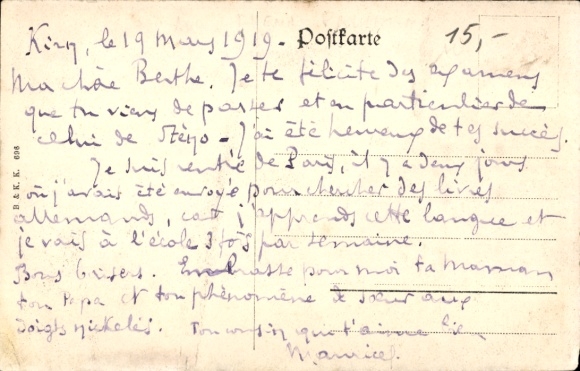 Kirn, le 19 Mars 1919. Postkarte 15,-
Ma chère Berthe. Je te félicite des examens
que tu viens de passer et en particulier de
celui de Sténo - J'ai été heureux de tes succès.
Je suis rentré de Paris, il y a deux jours
où j'avais été envoyé pour chercher des livres
allemands, car j'apprends cette langue et
je vais à l'école 3 fois par semaine.
Bons baisers. Embrasse pour moi ta maman
ton papa et ton phénomène de sœur aux
doigts nickelés. Ton cousin qui t'aime bien
Maurice.
B. & K. K. 698